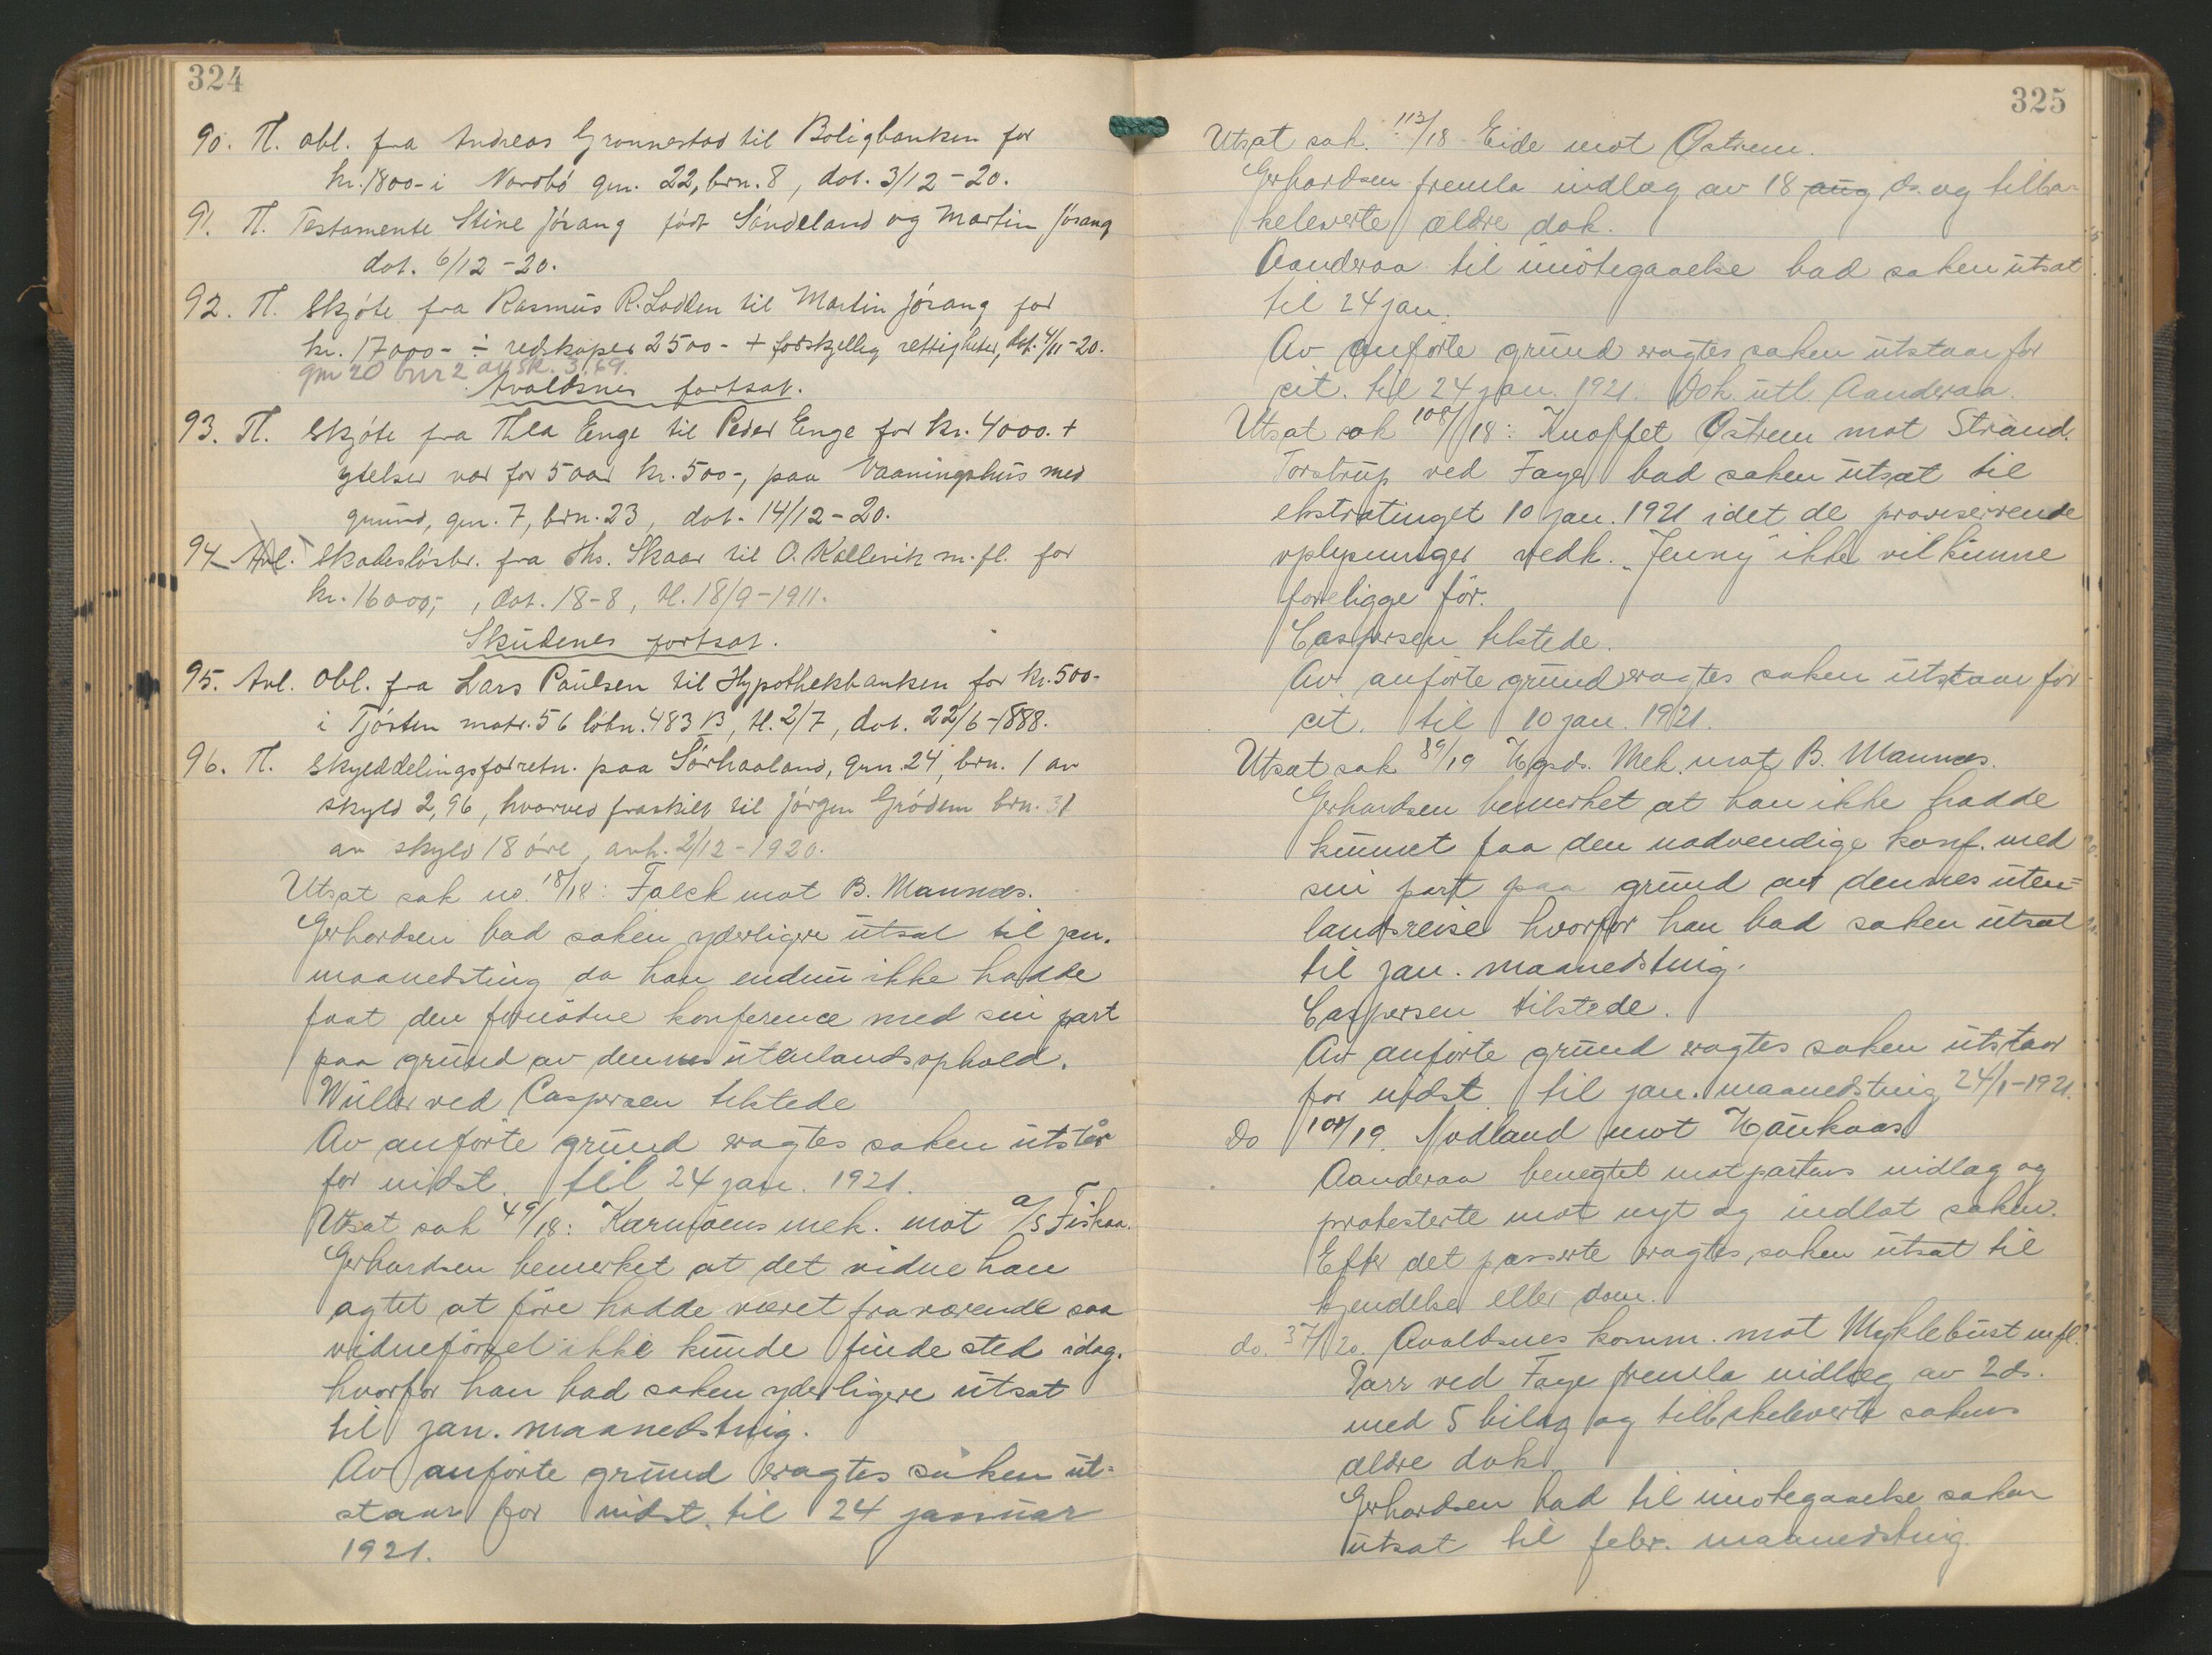 324
90. Tl. obl. fra Andreas Grønnestad til Boligbanken for
kr. 1800- i Nordbö gn. 22, brn. 8, dat. 3/12-20.
91. Tl. Testamente Stine Jösang født Sändeland og Martin Jösang
dat. 6/12-20.
92. Tl. Skjöte fra Rasmus R. Lodden til Martin Jösang for
kr. 17000- ÷ redskaper 2500- + forskjellig rettigheter, dat. 4/11-20.
gnr 20 bnr 2 av sk. 3.69.
Avaldsnes fortsat.
93. Tl. Skjöte fra Thea Enge til Peder Enge for kr. 4000. +
ytelser var for 5 aar kr. 500-, paa Vaaningshus med
grund, gn. 7, brn. 23, dat. 14/12-20.
94 Avl. Skadeslösbr. fra Ths. Skaar til O. Kallevik m.fl. for
kr. 16000,-, dat. 18-8, tl. 18/9-1911.
Skudenes fortsat.
95. Avl. Obl. fra Lars Paulsen til Hypothekbanken for kr. 500-
i Tjösten matr. 56 löbn. 483 B, tl. 2/7, dat. 22/6-1888.
96. Tl. Skylddelingsforretn. paa Sörhaaland, gn. 24, brn. 1 av
skyld 2,96, hvorved fraskilt til Jörgen Grödem brn. 31
av skyld 18 öre, avh. 2/12-1920.
Utsat sak no. 18/18: Falck mot B. Mannes.
Gerhardsen bad saken yderligere utsat til jan.
maanedsting da han endnu ikke hadde
faat den fornödne konference med sin part
paa grund av dennes utenlandsophold.
Müller ved Caspersen tilstede
Av anförte grund vagtes saken utstår
for vidst. til 24 jan. 1921.
Utsat sak 49/18: Karmöens mek. mot a/s Fiskaa.
Gerhardsen bemerket at det vidne han
agtet at före hadde været fraværende saa
vidneförsel ikke kunde finde sted idag.
hvorfor han bad saken yderligere utsat
til jan. maanedsting.
Av anförte grund vagtes saken ut-
staar for vidst. til 24 januar
1921.
325
Utsat sak. 113/18 Eide mot Østrem.
Gerhardsen fremla indlæg av 18 aug ds. og tilba-
keleverte ældre dok.
Aanderaa til imötegaaelse bad saken utsat
til 24 jan.
Av anförte grund vagtes saken utstaar for
cit. til 24 jan. 1921. Dok. utl. Aanderaa.
Utsat sak 108/18: Knoffet Østrem mot Strand.
Torstrup ved Faye bad saken utsat til
ekstratinget 10 jan. 1921 idet de
oplysninger vedk. "Jenny" ikke vil kunne
foreligge för.
Caspersen tilstede.
Av anförte grund vagtes saken utstaar for
cit. til 10 jan. 1921.
Utsat sak 89/19 Hgsds. Mek. mot B. Mannes.
Gerhardsen bemerket at han ikke hadde
kunnet faa den nødvendige konf. med
sin part paa grund av dennes uten-
landsreise hvorfor han bad saken utsat
til jan. maanedsting.
Caspersen tilstede.
Av anförte grund vagtes saken utstaar
for vidst. til jan. maanedsting 24/1-1921.
Do 104/19. Nodland mot Haukaas
Aanderaa benegtet motpartens indlæg og
protesterte mot nyt og indlot saken.
Efter det passerte vagtes saken utsat til
kjendelse eller dom.
do. 37/20. Avaldsnes komm. mot Myklebust m.fl.
Parr ved Faye fremla indlæg av 2 ds.
med 5 bilag og tilbakeleverte sakens
ældre dok.
Gerhardsen bad til imötegaaelse saken
utsat til febr. maanedsting.